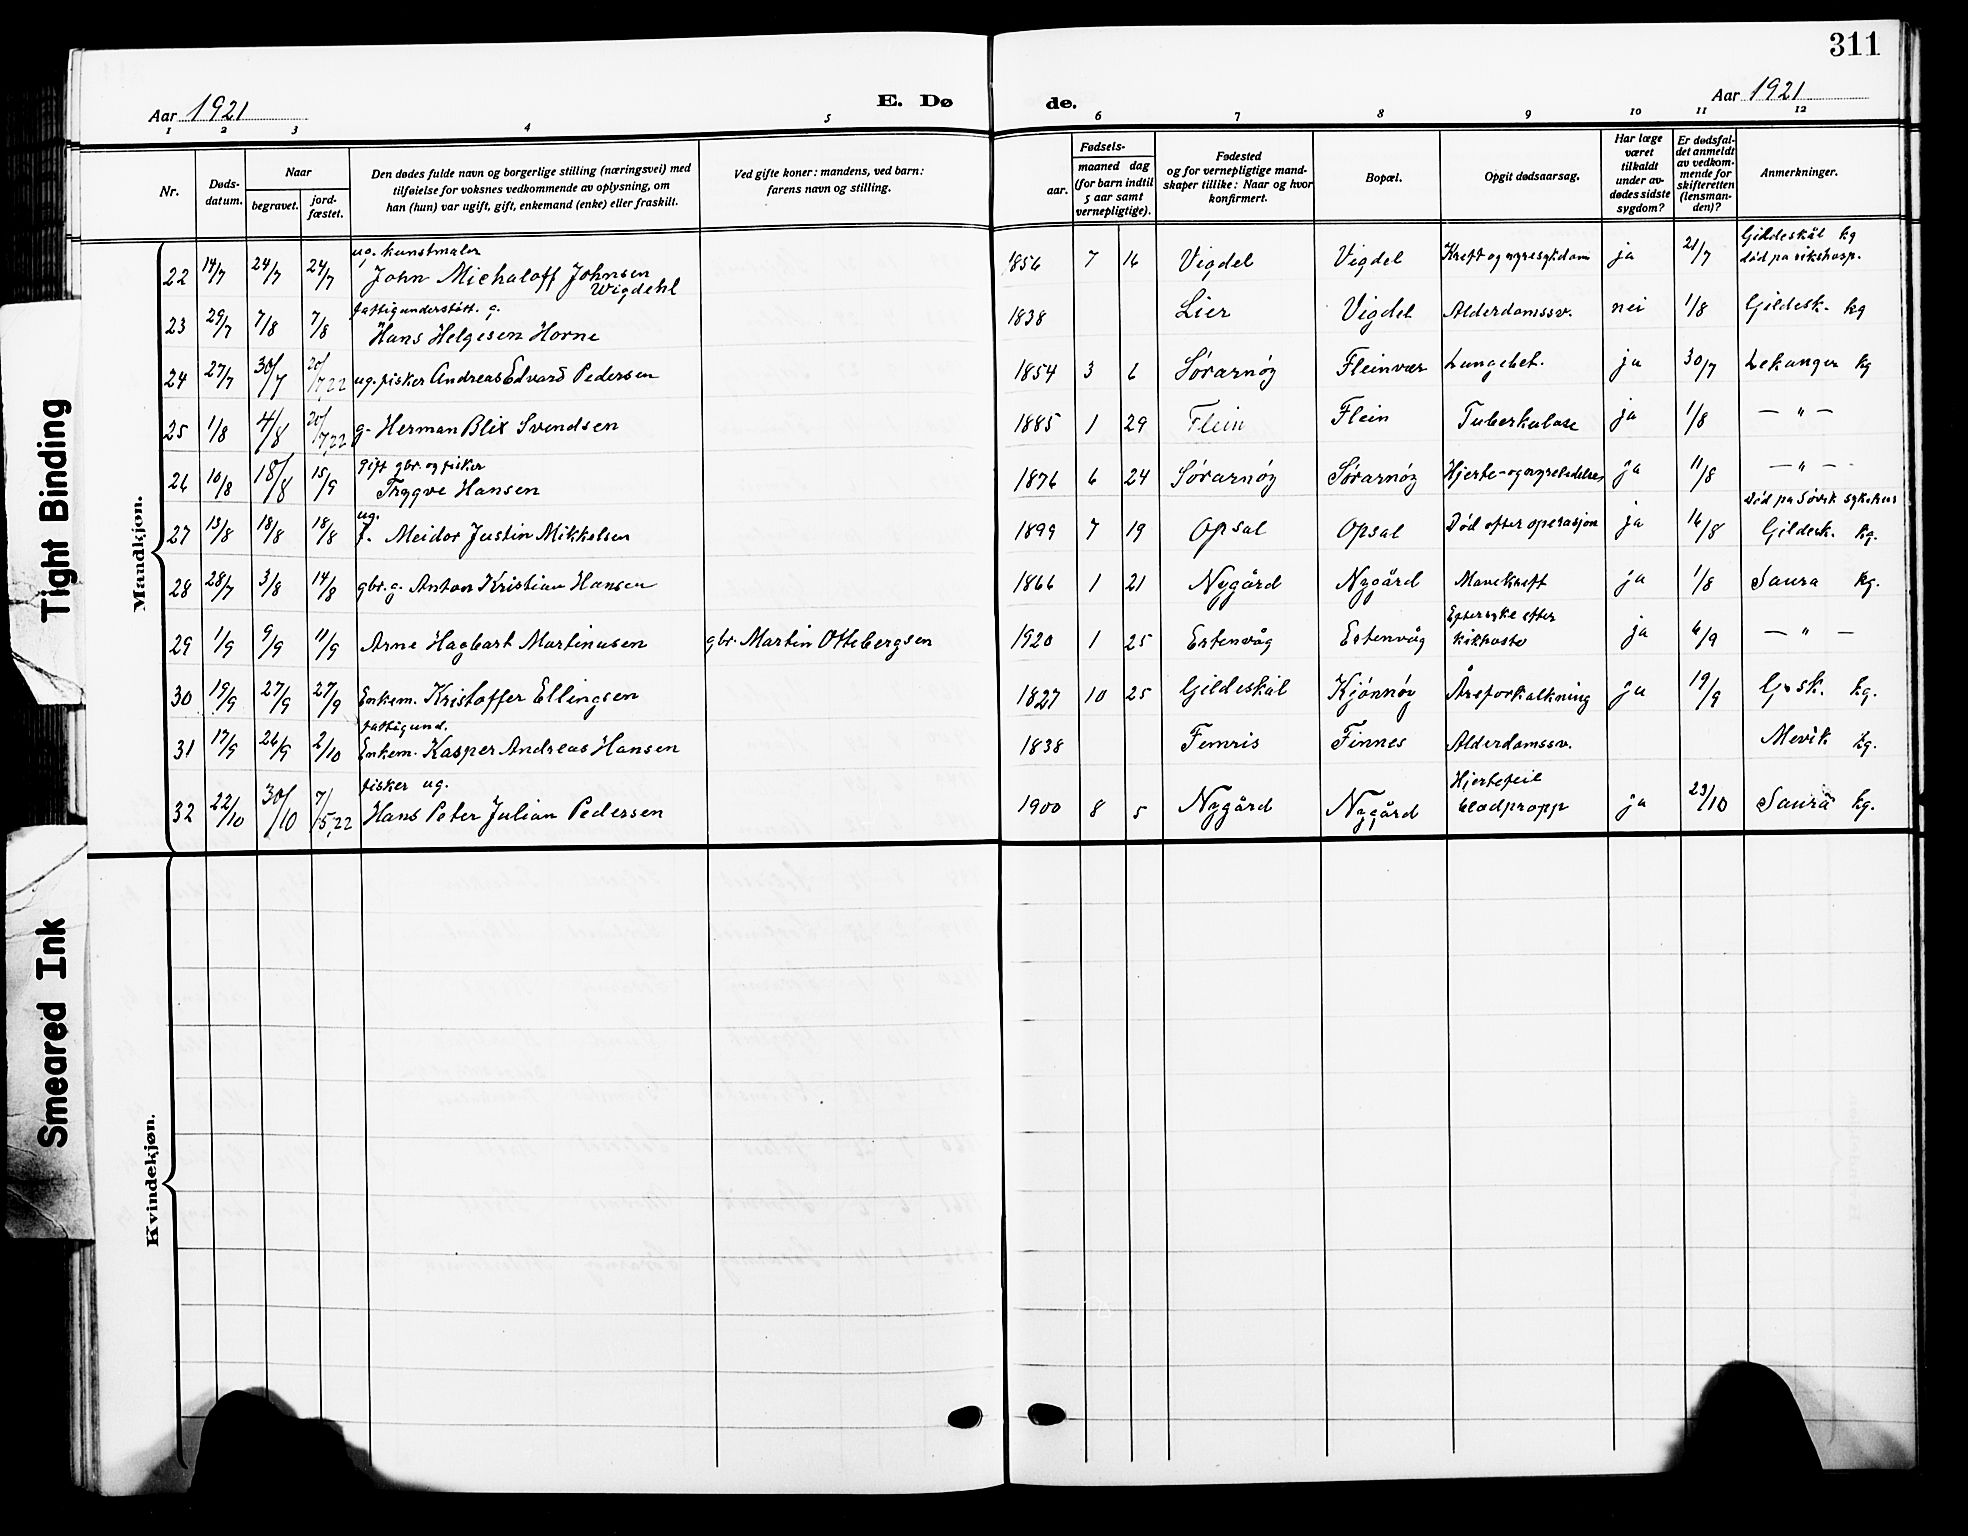 311
Aar 1921
E. Dø
de.
Aar 1921
1 2 3 4 5 6 7 8 9 10 11 12
Nr.
Døds-
datum.
Naar
begravet.
jord-
fæstet.
Den dødes fulde navn og borgerlige stilling (næringsvei) med
tilføielse for voksnes vedkommende av oplysning, om
han (hun) var ugift, gift, enkemand (enke) eller fraskilt.
Ved gifte koner: mandens, ved barn:
farens navn og stilling.
Fødsels-
aar.
maaned dag
(for barn indtil
5 aar samt
vernepligtige).
Fødested
og for vernepligtige mand-
skaper tillike: Naar og hvor
konfirmert.
Bopæl.
Opgit dødsaarsag.
Har læge
været
tilkaldt
under av-
dødes sidste
sygdom?
Er dødsfal-
det anmeldt
av vedkom-
mende for
skifteretten
(lensman-
den)?
Anmerkninger.
Mandkjøn.
ug. kunstmaler Gildeskål kg
22 14/7 24/7 24/7 John Michaloff Johnsen 1856 7 16 Vigdel Vigdel Kreft og nyresykdom ja 21/7 død på rikshosp.
Wigdehl
fattigunderstøtt. g.
23 29/7 7/8 7/8 Hans Helgesen Horne 1838 Lier Vigdel Alderdomssv. nei 1/8 Gildesk. kg
24 27/7 30/7 20/7,22 ug. fisker Andreas Edvard Pedersen 1854 3 6 Sørarnøy Fleinvær Lungebet. ja 30/7 Lekanger kg
25 1/8 4/8 20/7,22 g. Herman Blix Svendsen 1885 1 29 Flein Flein Tuberkulose ja 1/8 — " —
gift gbr. og fisker
26 10/8 18/8 15/9 Trygve Hansen 1876 6 24 Sørarnøy Sørarnøy Hjerte- og nyrelidelse ja 11/8 — " —
ug. Død på Søvik sykehus
27 13/8 18/8 18/8 f. Meidor Justin Mikkelsen 1899 7 19 Opsal Opsal Død efter operasjon ja 16/8 Gildesk. kg.
28 28/7 3/8 14/8 gbr. g. Anton Kristian Hansen 1866 1 21 Nygård Nygård Mavekreft ja 1/8 Saura kg.
Eftersyke efter
29 1/9 9/9 11/9 Arne Hagbart Martinusen gbr. Martin Ottebergsen 1920 1 25 Estenvåg Estenvåg kikhoste ja 6/9 — " —
30 19/9 27/9 27/9 Enkem. Kristoffer Ellingsen 1827 10 25 Gildeskål Kjønnøy Åreforkalkning ja 19/9 G.sk. kg.
fattigund.
31 17/9 26/9 2/10 Enkem. Kasper Andreas Hansen 1838 Femris Finnes Alderdomssv. Mevik kg.
fisker ug. Hjertefeil
32 22/10 30/10 7/5,22 Hans Peter Julian Pedersen 1900 8 5 Nygård Nygård blodpropp ja 23/10 Saura kg.
Kvindekjøn.
Tight Binding
Smeared Ink